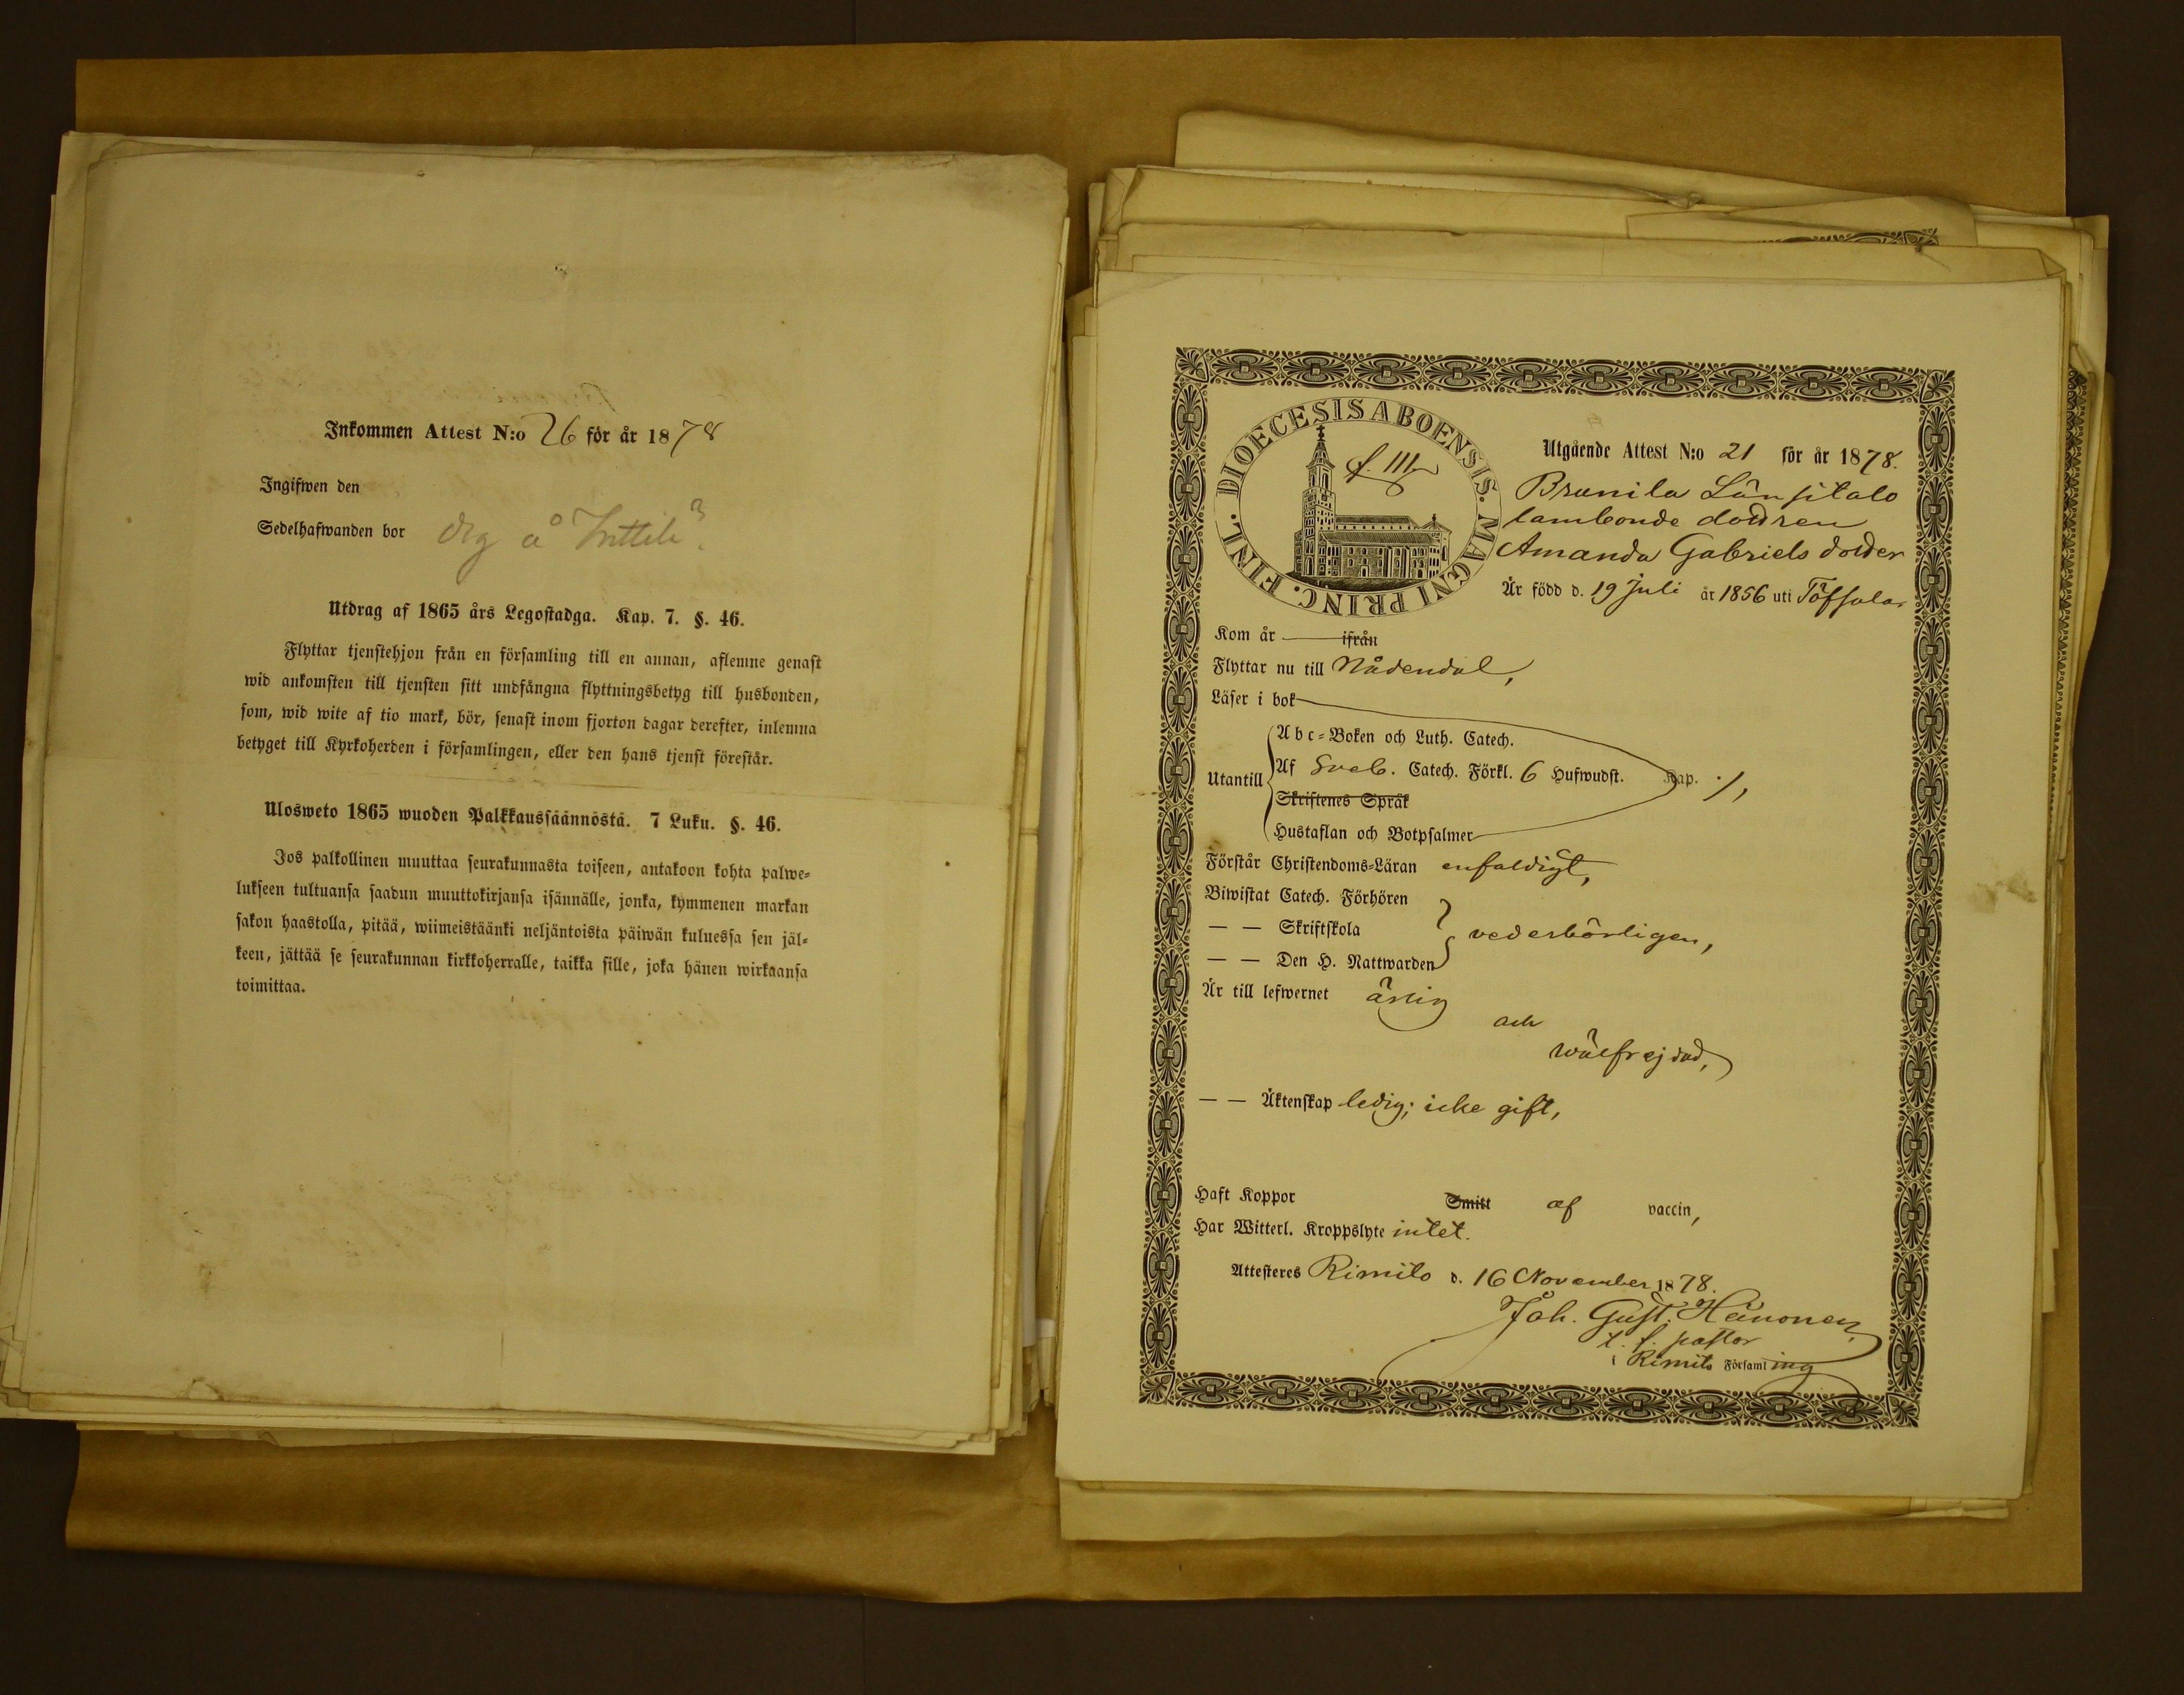 Inkommen Attest N:o 26 för år 1878
Ingifwen den
Sedelhafwanden bor å
Utdrag af 1865 års Legostadga. Kap. 7. §. 46.
Flyttar tjenstehjon från en församling till en annan, aflemne genast
wid ankomsten till tjensten sitt undfångna flyttningsbetyg till husbonden,
som, wid wite af tio mark, bör, senast inom fjorton dagar derefter, inlemna
betyget till Kyrkoherden i församlingen, eller den hans tjenst förestår.
Ulosweto 1865 wuoden Palkkaussäännöstä. 7 Luku. §. 46.
Jos palkollinen muuttaa seurakunnasta toiseen, antakoon kohta palwe-
lukseen tultuansa saadun muuttokirjansa isännälle, jonka, kymmenen markan
sakon haastolla, pitää, wiimeistäänki neljäntoista päiwän kuluessa sen jäl-
keen, jättää se seurakunnan kirkkoherralle, taikka sille, joka hänen wirkaansa
toimittaa.
DIOECESIS ABOENSIS. MAGNI PRINC. FINL.
f. 111
Utgående Attest N:o 21 för år 1878.
Brunila Länsitalo
lambonde dottren
Amanda Gabriels dotter
Är född d. 19 Juli år 1856 uti Töfsala.
Kom år — ifrån
Flyttar nu till Nådendal,
Läser i bok
Utantill
Abc-Boken och Luth. Catech.
Af Sveb. Catech. Förkl. 6 Hufwudst. Kap. ·/,
Skriftenes Språk
Hustaflan och Botpsalmer
Förstår Christendoms-Läran enfaldigt,
Biwistat Catech. Förhören
— — Skriftskola vederbörligen,
— — Den H. Nattwarden
Är till lefwernet ärlig
och
wälfrejdad,
— — Äktenskap ledig; icke gift,
Haft Koppor Smitt af vaccin,
Har Witterl. Kroppslyte intet.
Attesteres Rimito d. 16 November 1878.
Joh. Gust. Hänonen
t. f. pastor
i Rimito Församling